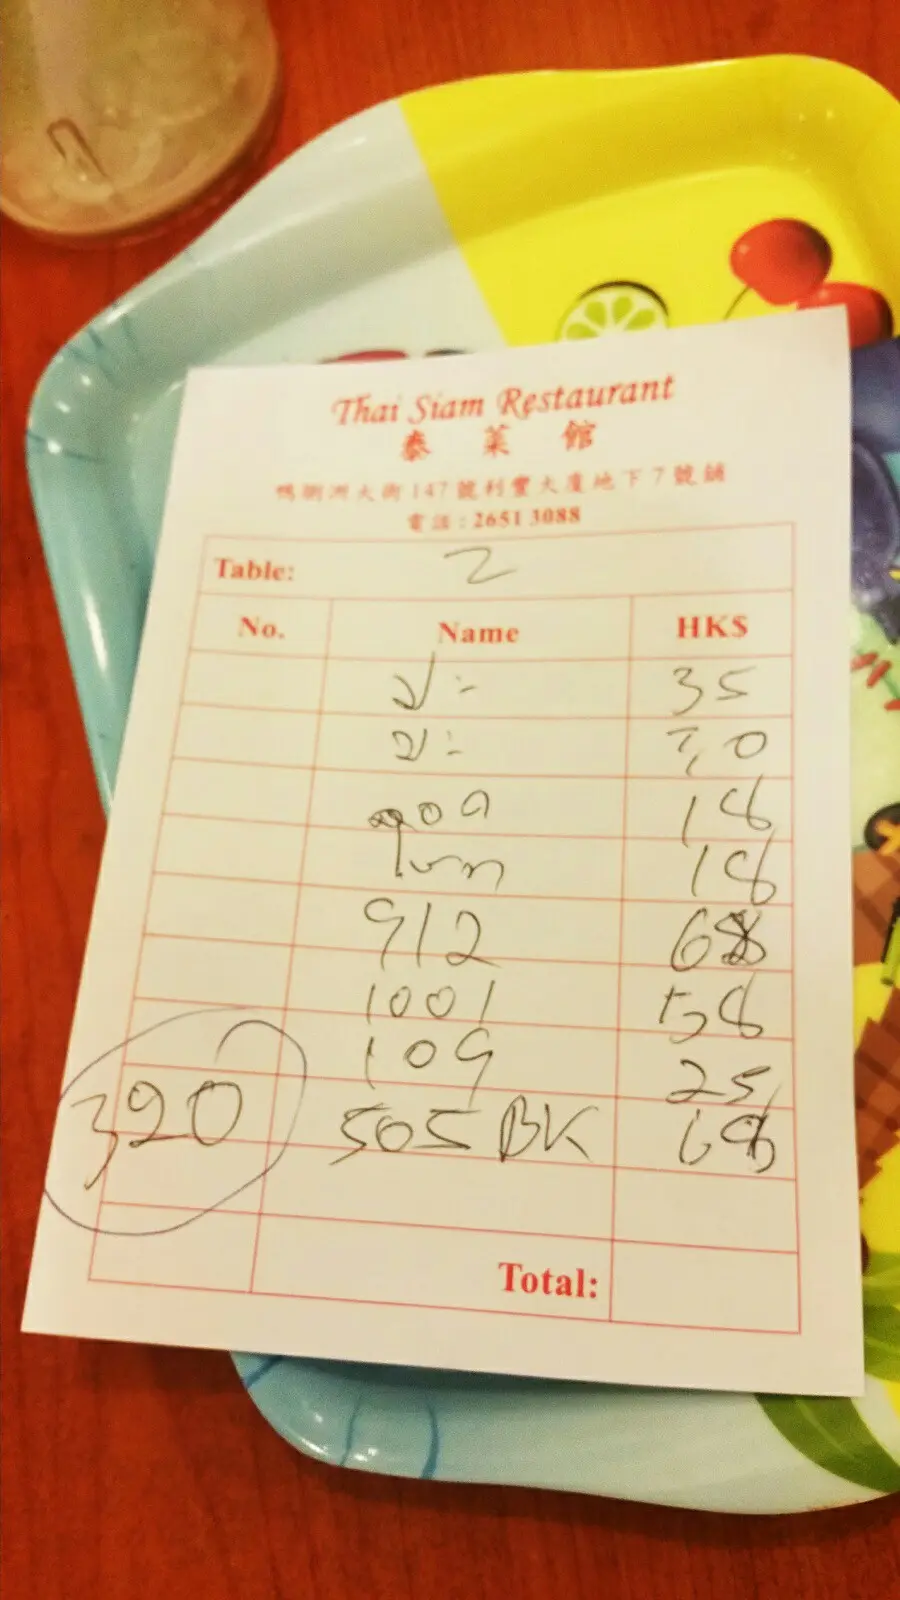 Thai Siam Restaurant
泰 菜 館
鴨脷洲大街147號利豐大廈地下7號舖
電話 : 2651 3088
Table: 2
No. Name HK$
35
30
18
18
912 68
1001 58
109 25
320 505 BK 68
Total: